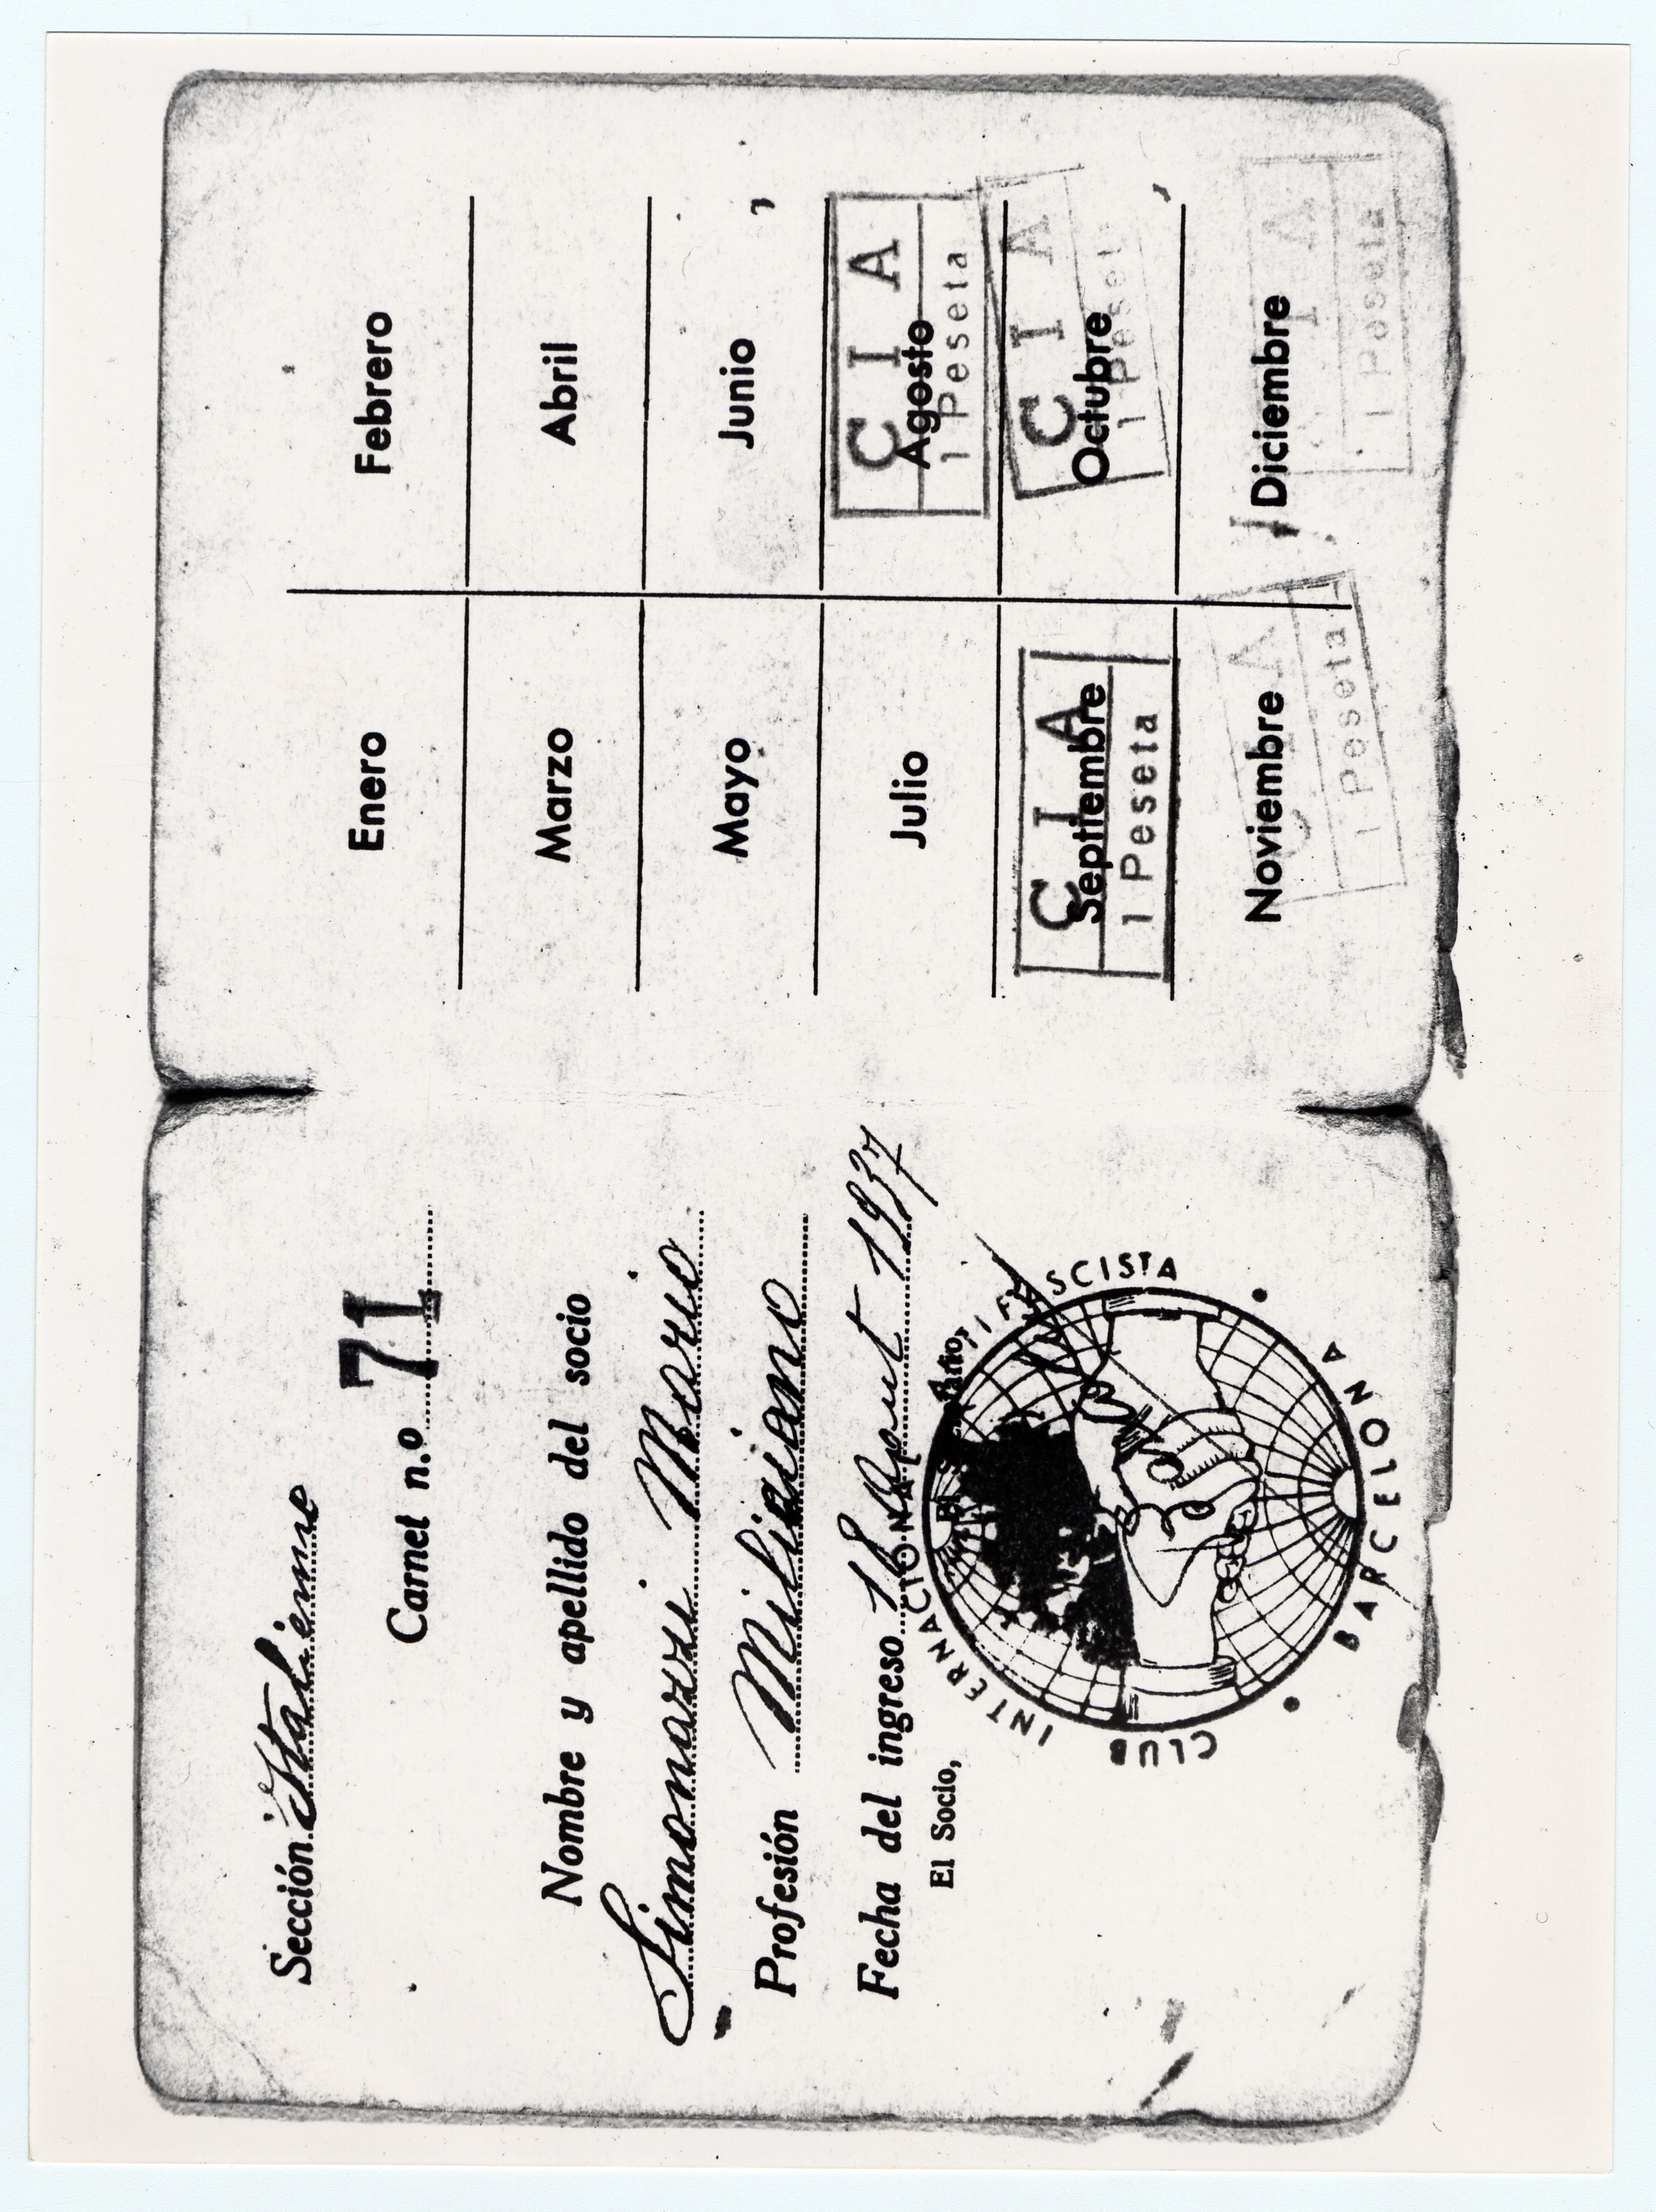 Sección Italiéme
Carnet n.o 71
Nombre y apellido del socio
Simonazzi Mario
Profesión Miliciano
Fecha del ingreso 18 Agout 1937
El Socio,
CLUB INTERNACIONAL ANTIFASCISTA
BARCELONA
Enero Febrero
Marzo Abril
Mayo Junio
Julio Agosto
C I A
1 Peseta
Septiembre Octubre
C I A C I A
1 Peseta 1 Peseta
Noviembre Diciembre
A I A
1 Peseta 1 Peseta